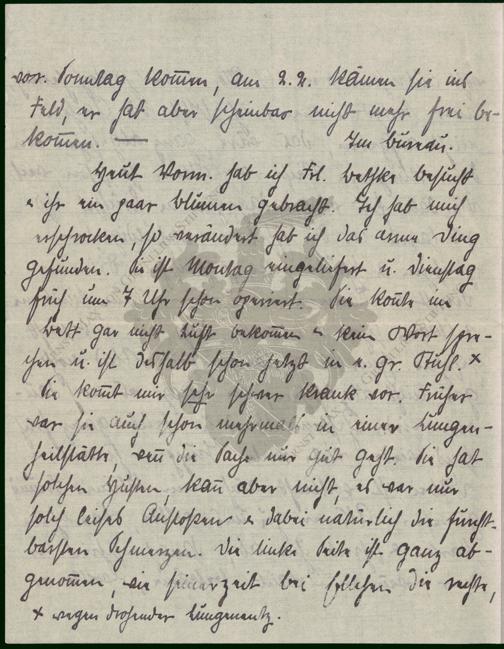 vor. Sonntag kom̅en, am 2.2. kämen sie ins
Feld, er hat aber scheinbar nicht mehr frei be-
kom̅en. — Im Bureau.
Heut Vorm. hab ich Frl. Bethke besucht
u ihr ein paar Blumen gebracht. Ich hab mich
erschrocken, so verändert hab ich das arme Ding
gefunden. Sie ist Montag eingeliefert u. Dienstag
früh um 7 Uhr schon operiert. Sie kon̅te im
Bett gar nicht Luft bekom̅en u kein Wort spre-
chen u. ist deshalb schon jetzt in e. gr. Stuhl. x
Sie kom̅t mir sehr schwer krank vor. Früher
war sie auch schon mehrmals in einer Lungen-
heilstätte, wen̅ die Sache nur gut geht. Sie hat
solchen Husten, kan̅ aber nicht, es war nur
solch leises Anstoßen u dabei natürlich die furcht-
barsten Schmerzen. Die linke Seite ist ganz ab-
genom̅en, wie seinerzeit bei Ellchen die rechte,
x wegen drohender Lungenentz.